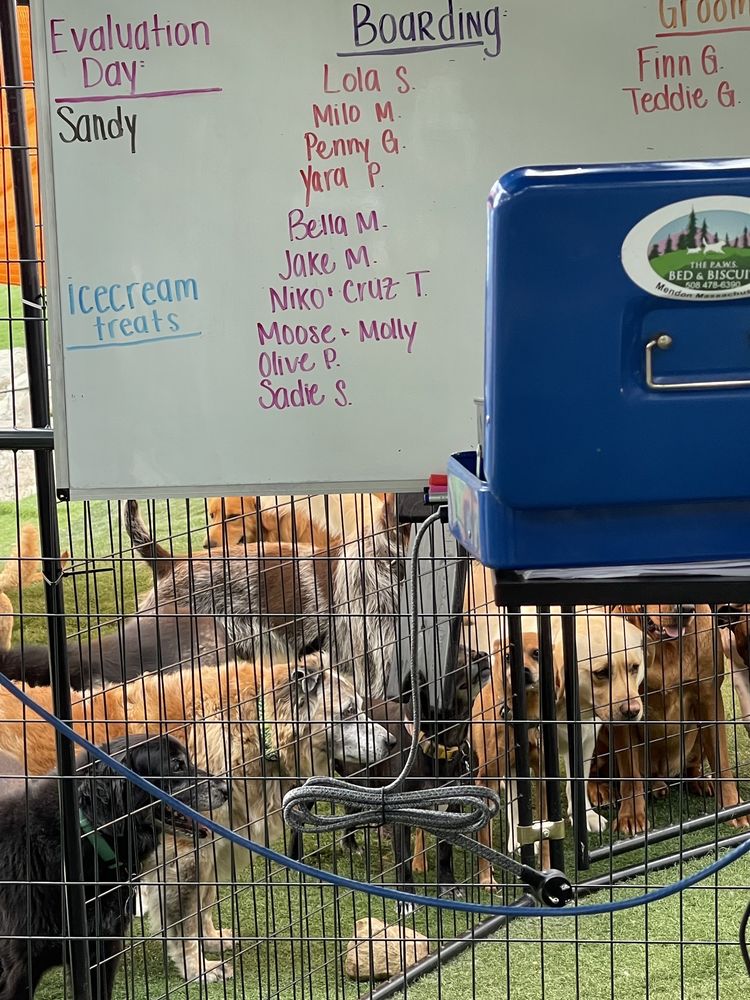 Evaluation
Day:
Sandy
icecream
treats
Boarding
Lola S.
Milo M.
Penny G.
Yara P.
Bella M.
Jake M.
Niko + Cruz T.
Moose + Molly
Olive P.
Sadie S.
Groom
Finn G.
Teddie G.
THE P.A.W.S.
BED & BISCUI
508 478-6390
Mendon Massachus